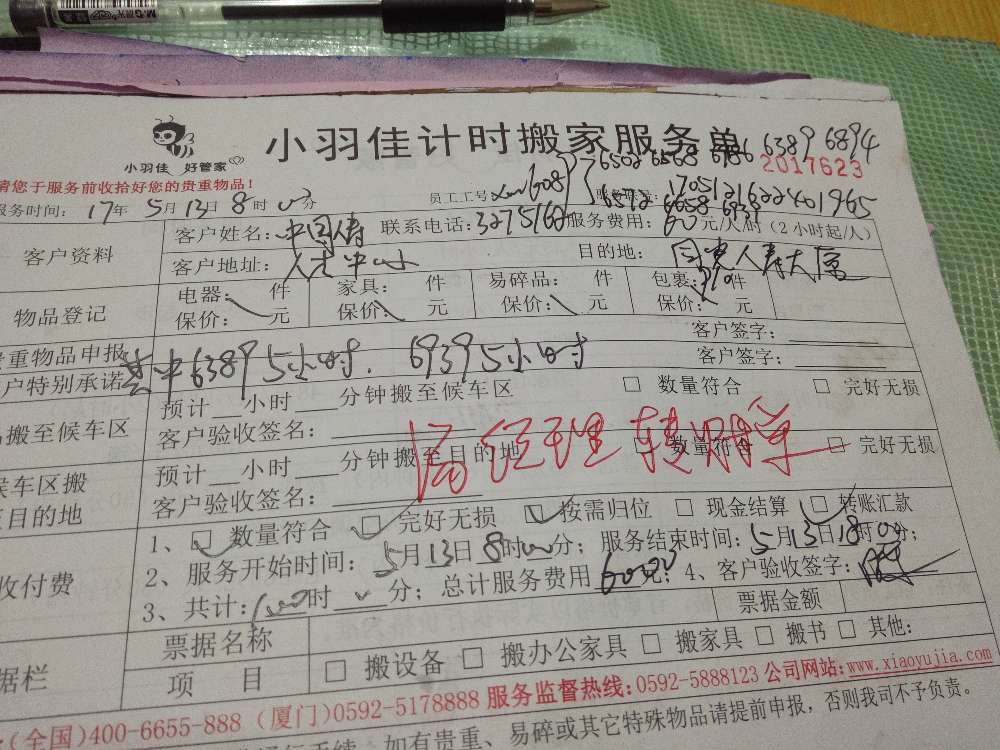 小羽佳计时搬家服务单
小羽佳 好管家
6389 6894
6502 6568
2017623
请您于服务前收拾好您的贵重物品!
员工工号
服务时间: 17年 5月 13日 8时 00分
客户资料
客户姓名: 中国人寿 联系电话: 3275162 服务费用: 60 元/人时(2小时起/人)
客户地址: 人才中心 目的地: 国际人寿大厦
物品登记
电器: 件 家具: 件 易碎品: 件 包裹: 310件
保价: 元 保价: 元 保价: 元 保价: 元
重物品申报
客户签字:
户特别承诺
客户签字:
其中6389 5小时. 6939 5小时
搬至候车区
预计__小时___分钟搬至候车区 □ 数量符合 □ 完好无损
客户验收签名:
候车区搬
目的地
预计__小时___分钟搬至目的地 □ 数量符合 □ 完好无损
客户验收签名:
经理转财单
收付费
1、☑ 数量符合 ☑ 完好无损 ☑ 按需归位 □ 现金结算 ☑ 转账汇款
2、服务开始时间: 5月13日8时00分; 服务结束时间: 5月13日18时00分;
3、共计: 时 分; 总计服务费用 6000元; 4、客户验收签字:
据栏
票据名称
票据金额
项 目
□ 搬设备 □ 搬办公家具 □ 搬家具 □ 搬书 □ 其他:
(全国)400-6655-888 (厦门)0592-5178888 服务监督热线:0592-5888123 公司网站:www.xiaoyujia.com
如有贵重、易碎或其它特殊物品请提前申报, 否则我司不予负责。